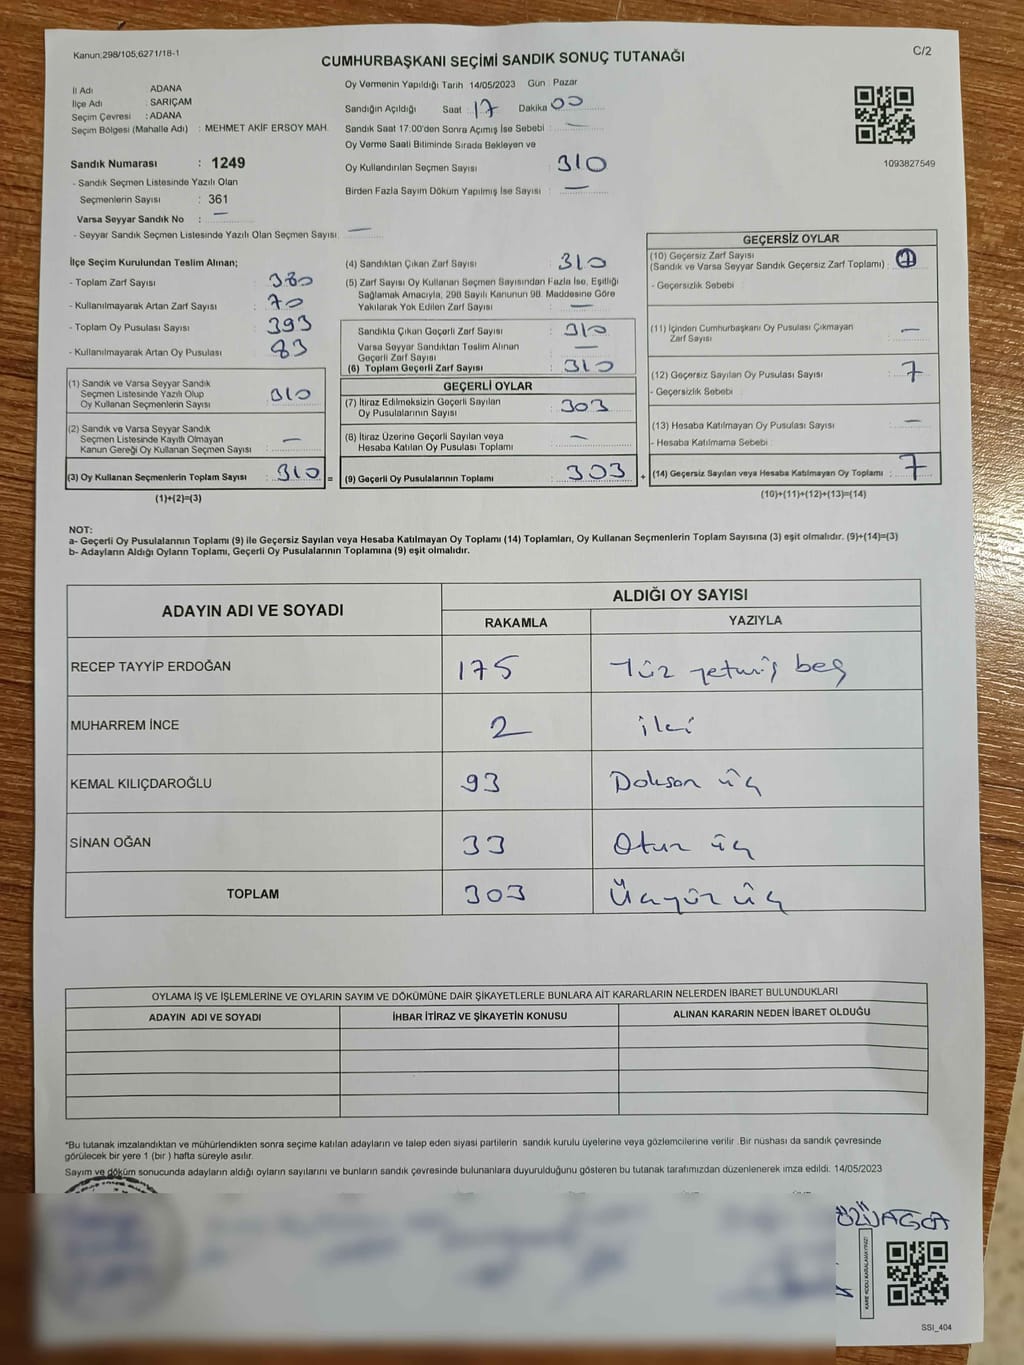 Kanun:298/105;6271/18-1
C/2
CUMHURBAŞKANI SEÇİMİ SANDIK SONUÇ TUTANAĞI
İl Adı ADANA
İlçe Adı : SARIÇAM
Seçim Çevresi : ADANA
Seçim Bölgesi (Mahalle Adı) : MEHMET AKİF ERSOY MAH.
Sandık Numarası : 1249
- Sandık Seçmen Listesinde Yazılı Olan
Seçmenlerin Sayısı : 361
Varsa Seyyar Sandık No : —
- Seyyar Sandık Seçmen Listesinde Yazılı Olan Seçmen Sayısı : —
Oy Vermenin Yapıldığı Tarih 14/05/2023 Gün : Pazar
Sandığın Açıldığı Saat : 17 Dakika : 00
Sandık Saat 17.00'den Sonra Açımış İse Sebebi : —
Oy Verme Saati Bitiminde Sırada Bekleyen ve
Oy Kullandırılan Seçmen Sayısı : 310
Birden Fazla Sayım Döküm Yapılmış İse Sayısı : —
1093827549
İlçe Seçim Kurulundan Teslim Alınan;
- Toplam Zarf Sayısı : 380
- Kullanılmayarak Artan Zarf Sayısı : 70
- Toplam Oy Pusulası Sayısı : 393
- Kullanılmayarak Artan Oy Pusulası : 83
(1) Sandık ve Varsa Seyyar Sandık
Seçmen Listesinde Yazılı Olup
Oy Kullanan Seçmenlerin Sayısı : 310
(2) Sandık ve Varsa Seyyar Sandık
Seçmen Listesinde Kayıtlı Olmayan
Kanun Gereği Oy Kullanan Seçmen Sayısı : —
(3) Oy Kullanan Seçmenlerin Toplam Sayısı : 310 =
(1)+(2)=(3)
(4) Sandıktan Çıkan Zarf Sayısı : 310
(5) Zarf Sayısı Oy Kullanan Seçmen Sayısından Fazla İse, Eşitliği
Sağlamak Amacıyla, 298 Sayılı Kanunun 98. Maddesine Göre
Yakılarak Yok Edilen Zarf Sayısı : —
Sandıkta Çıkan Geçerli Zarf Sayısı : 310
Varsa Seyyar Sandıktan Teslim Alınan
Geçerli Zarf Sayısı : —
(6) Toplam Geçerli Zarf Sayısı : 310
GEÇERLİ OYLAR
(7) İtiraz Edilmeksizin Geçerli Sayılan
Oy Pusulalarının Sayısı : 303
(8) İtiraz Üzerine Geçerli Sayılan veya
Hesaba Katılan Oy Pusulası Toplamı : —
(9) Geçerli Oy Pusulalarının Toplamı : 303 +
GEÇERSİZ OYLAR
(10) Geçersiz Zarf Sayısı
(Sandık ve Varsa Seyyar Sandık Geçersiz Zarf Toplamı) :
- Geçersizlik Sebebi :
(11) İçinden Cumhurbaşkanı Oy Pusulası Çıkmayan
Zarf Sayısı : —
(12) Geçersiz Sayılan Oy Pusulası Sayısı : 7
- Geçersizlik Sebebi :
(13) Hesaba Katılmayan Oy Pusulası Sayısı : —
- Hesaba Katılmama Sebebi :
(14) Geçersiz Sayılan veya Hesaba Katılmayan Oy Toplamı : 7
(10)+(11)+(12)+(13)=(14)
NOT:
a- Geçerli Oy Pusulalarının Toplamı (9) ile Geçersiz Sayılan veya Hesaba Katılmayan Oy Toplamı (14) Toplamları, Oy Kullanan Seçmenlerin Toplam Sayısına (3) eşit olmalıdır. (9)+(14)=(3)
b- Adayların Aldığı Oyların Toplamı, Geçerli Oy Pusulalarının Toplamına (9) eşit olmalıdır.
ADAYIN ADI VE SOYADI
ALDIĞI OY SAYISI
RAKAMLA YAZIYLA
RECEP TAYYİP ERDOĞAN 175 Yüz yetmiş beş
MUHARREM İNCE 2 iki
KEMAL KILIÇDAROĞLU 93 Doksan üç
SİNAN OĞAN 33 Otuz üç
TOPLAM 303 Üçyüz üç
OYLAMA İŞ VE İŞLEMLERİNE VE OYLARIN SAYIM VE DÖKÜMÜNE DAİR ŞİKAYETLERLE BUNLARA AİT KARARLARIN NELERDEN İBARET BULUNDUKLARI
ADAYIN ADI VE SOYADI İHBAR İTİRAZ VE ŞİKAYETİN KONUSU ALINAN KARARIN NEDEN İBARET OLDUĞU
*Bu tutanak imzalandıktan ve mühürlendikten sonra seçime katılan adayların ve talep eden siyasi partilerin sandık kurulu üyelerine veya gözlemcilerine verilir .Bir nüshası da sandık çevresinde
görülecek bir yere 1 (bir ) hafta süreyle asılır.
Sayım ve döküm sonucunda adayların aldığı oyların sayılarını ve bunların sandık çevresinde bulunanlara duyurulduğunu gösteren bu tutanak tarafımızdan düzenlenerek imza edildi. 14/05/2023
KARE KODU KARALAMAYINIZ!
SSI_404